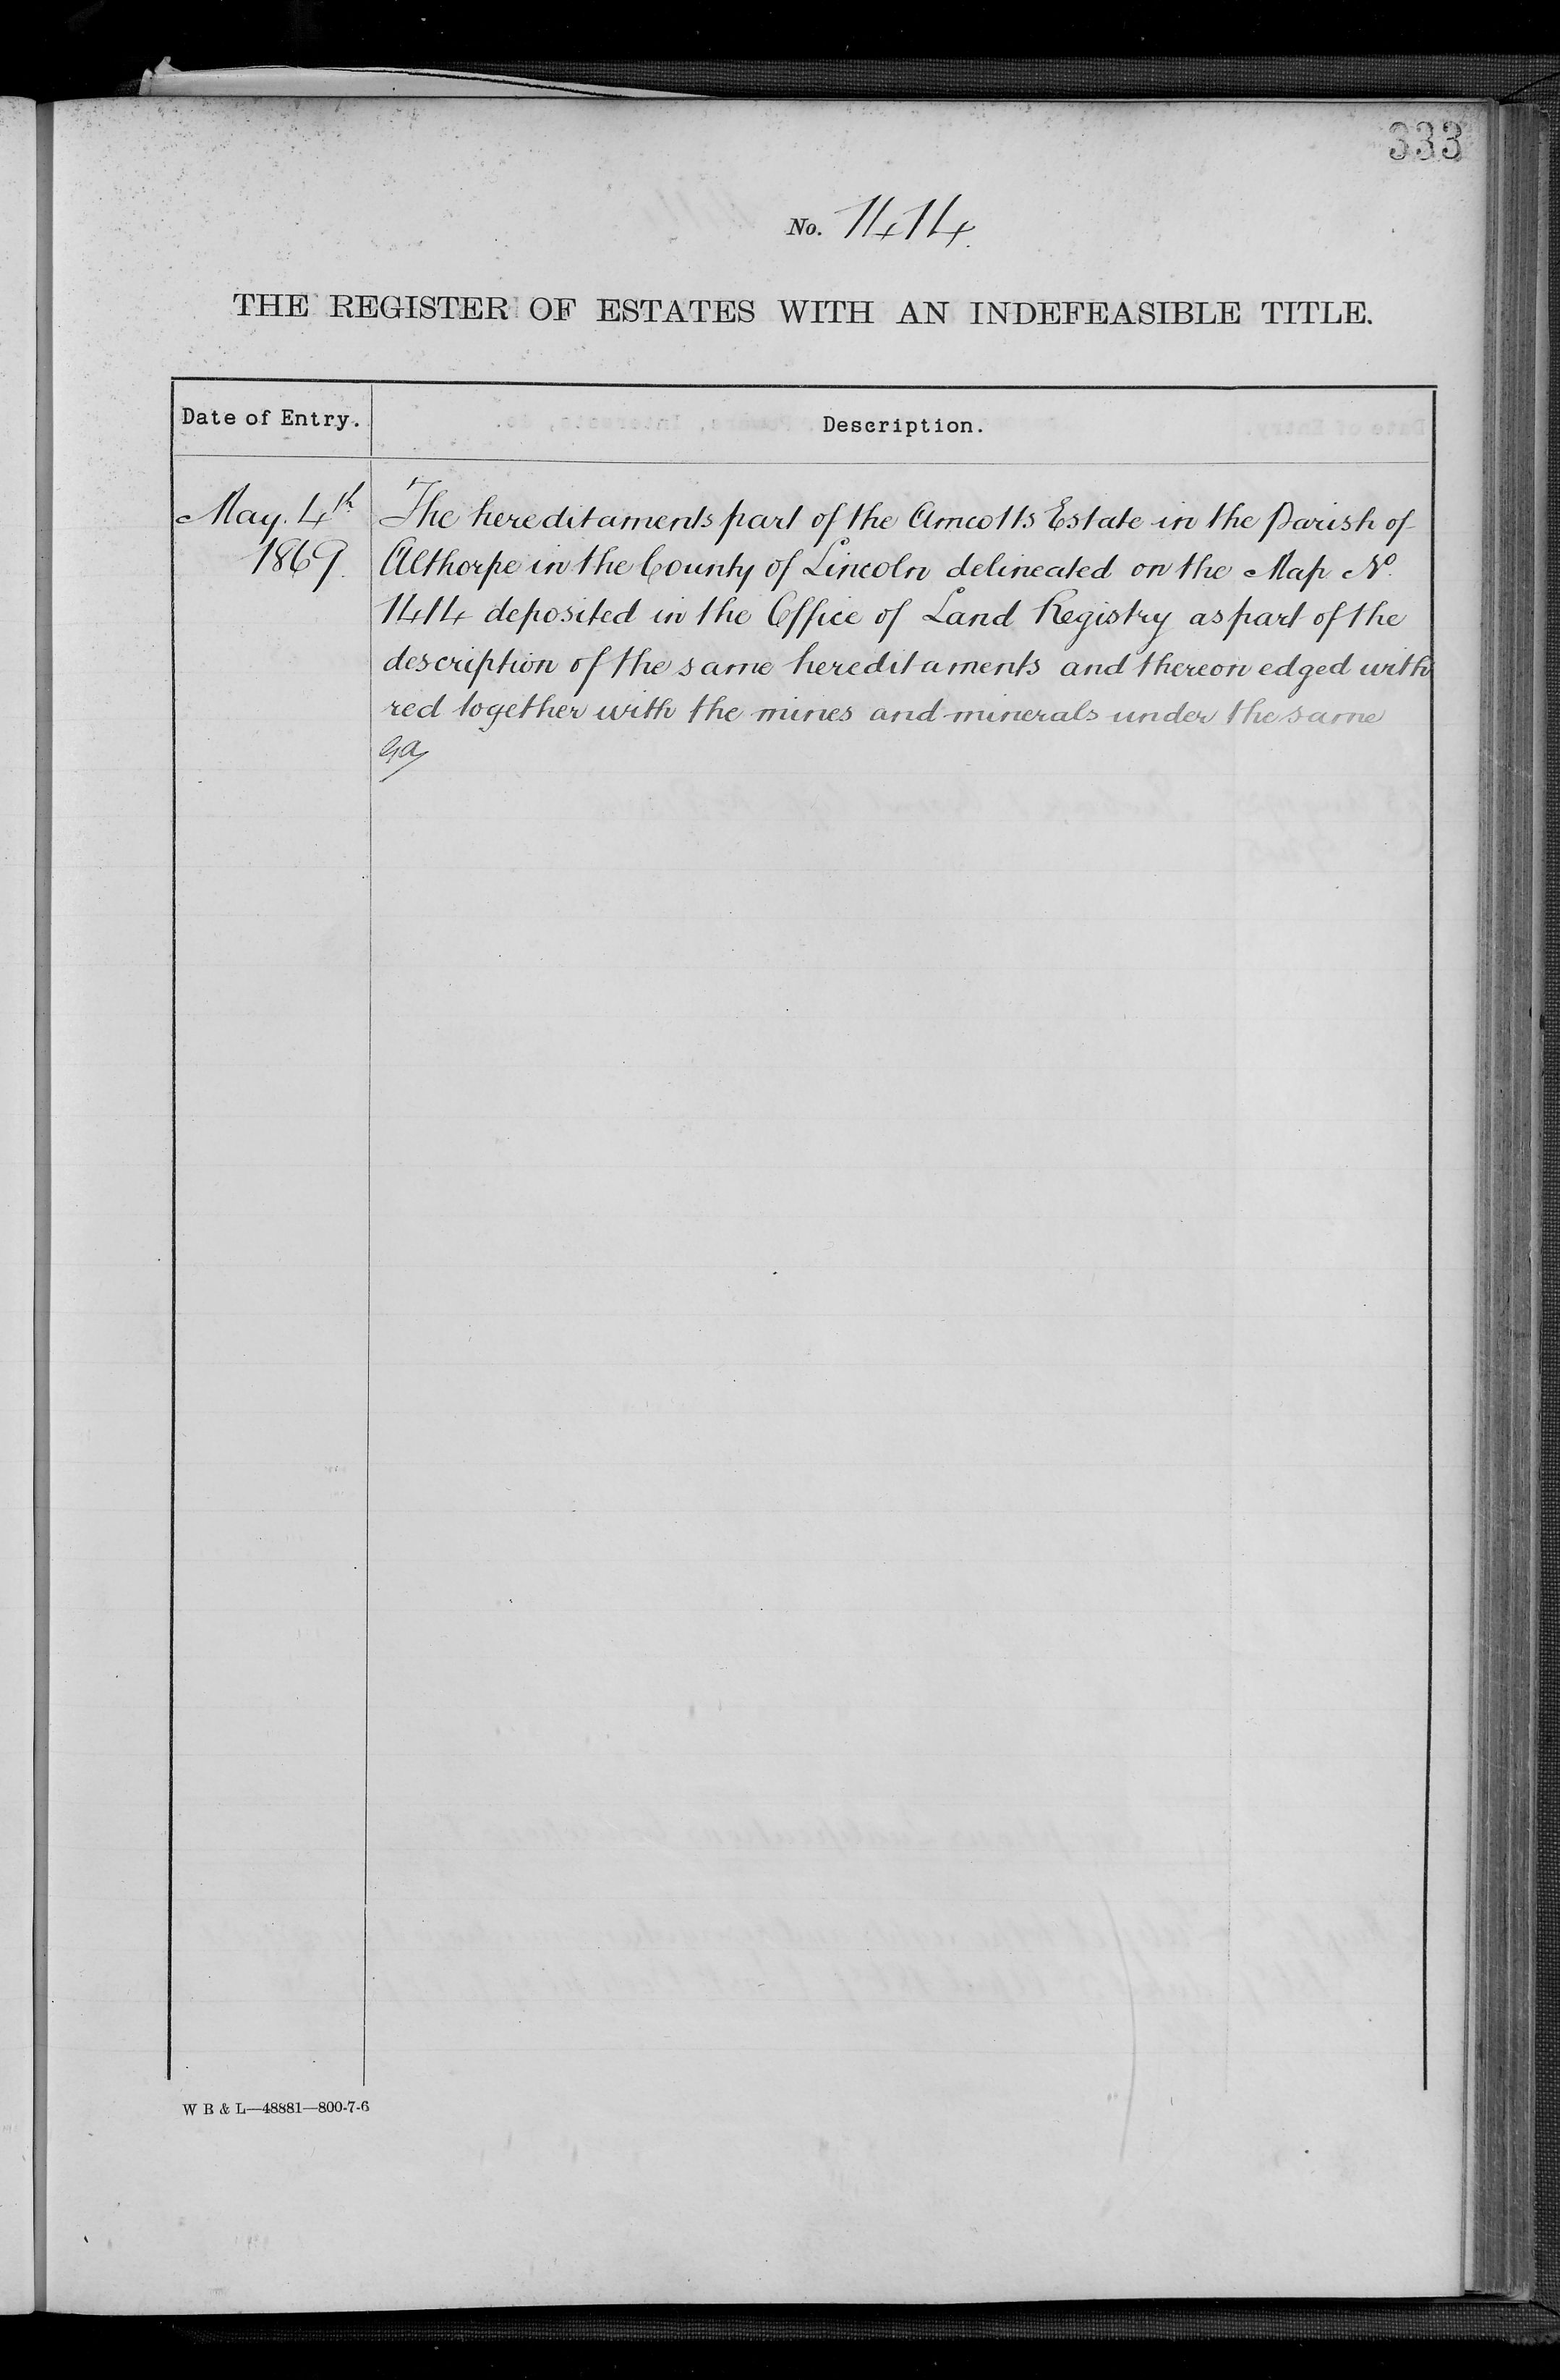 333
No. 1414.
THE REGISTER OF ESTATES WITH AN INDEFEASIBLE TITLE.
Date of Entry. Description.
May. 4th The hereditaments part of the Amcotts Estate in the Parish of
1869. Althorpe in the County of Lincoln delineated on the Map No.
1414 deposited in the Office of Land Registry as part of the
description of the same hereditaments and thereon edged with
red together with the mines and minerals under the same
W B & L—48881—800-7-6